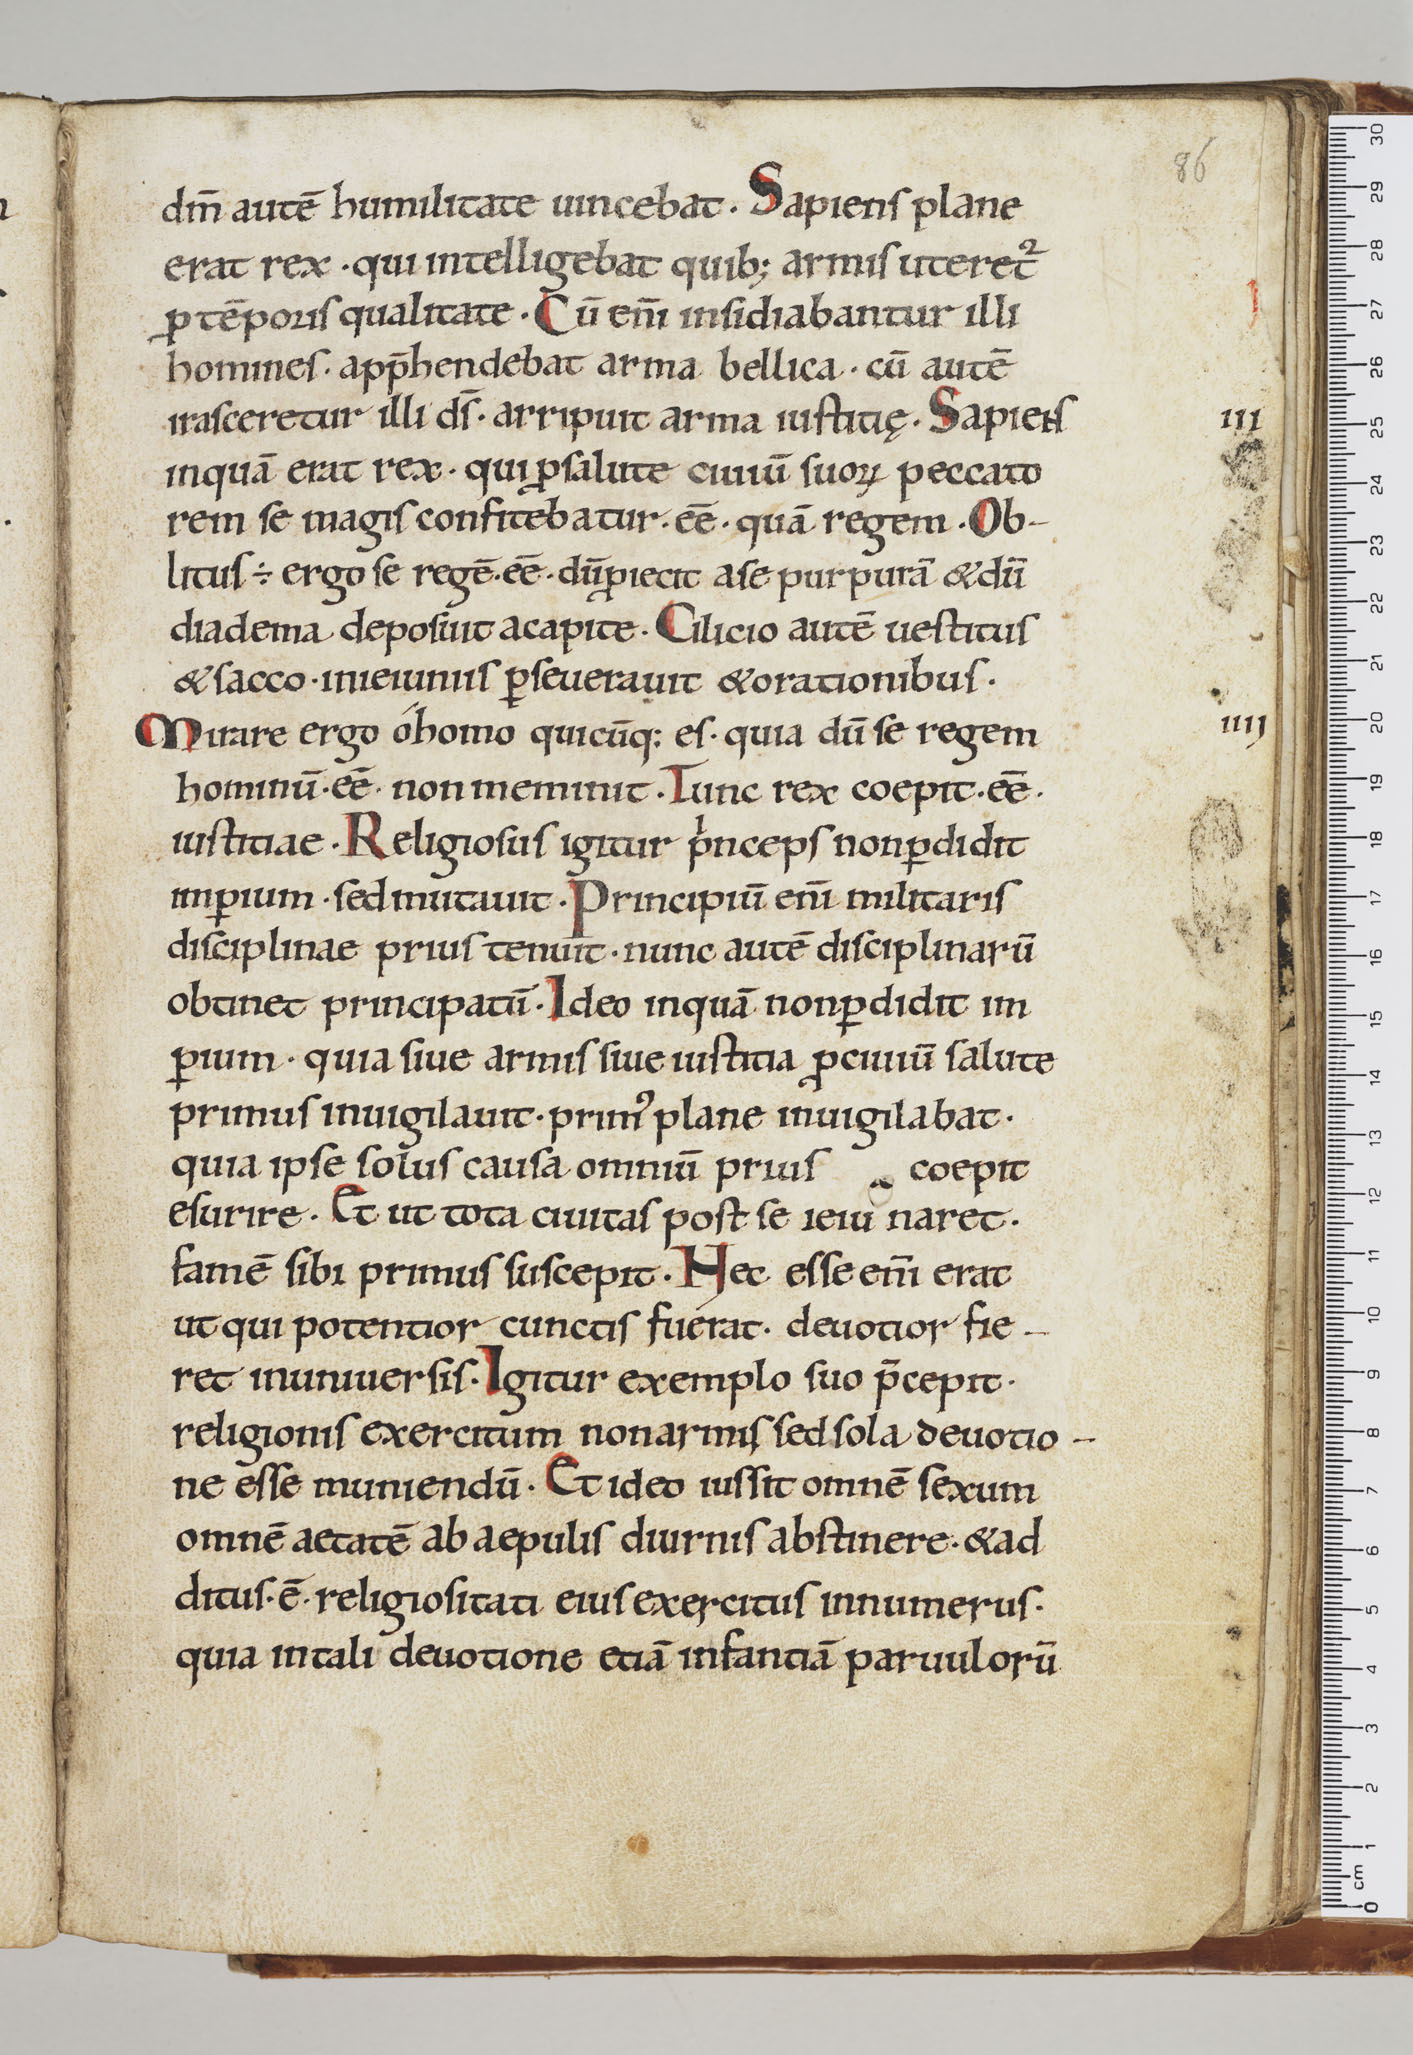 86
dm̄ autē humilitate uincebat. Sapiens plane
erat rex. qui intelligebat quib; armis uteret᷑
ꝑ tēporis qualitate. Cū eni̅ insidiabantur illi
homines. app̄hendebat arma bellica. cū autē
irasceretur illi ds̄. arripuit arma iustitię. Sapiens
III
inquā erat rex. qui ꝓ salute ciuiū suoꝝ peccato
rem se magis confitebatur. eē. quā regem. Ob-
litus ÷ ergo se regē. eē. dū ꝓiecit a se purpurā & dū
diadema deposuit a capite. Cilicio autē uestitus
& sacco. inieiuniis ꝑseuerauit & orationibus.
Mirare ergo ó homo quicūq; es. quia dū se regem
IIIJ
hominū. eē. non meminit. Tunc rex coepit. eē.
iustitiae. Religiosus igitur pͥnceps non ꝑdidit
imꝑium. sed mutauit. Principiū eni̅ militaris
disciplinae prius tenuit. nunc autē disciplinarū
obtinet principatū. Ideo inquā non ꝑdidit im
ꝑium. quia siue armis siue iustitia ꝓ ciuiū salute
primus inuigilauit. prim᾽ plane inuigilabat.
quia ipse solus causa omniū prius coepit
esurire. Et ut tota ciuitas post se ieiu naret.
famē sibi primus suscepit. Hec esse eni̅ erat
ut qui potentior cunctis fuerat. deuotior fie-
ret in uniuersis. Igitur exemplo suo p̄cepit.
religionis exercitum non armis sed sola deuotio-
ne esse muniendū. Et ideo iussit omnē sexum
omnē aetatē ab aepulis diurnis abstinere. & ad
ditus. ē. religiositati eius exercitus innumerus.
quia in tali deuotione etiā infantiā paruulorū
30
29
28
27
26
25
24
23
22
21
20
19
18
17
16
15
14
13
12
11
10
9
8
7
6
5
4
3
2
1
cm
0